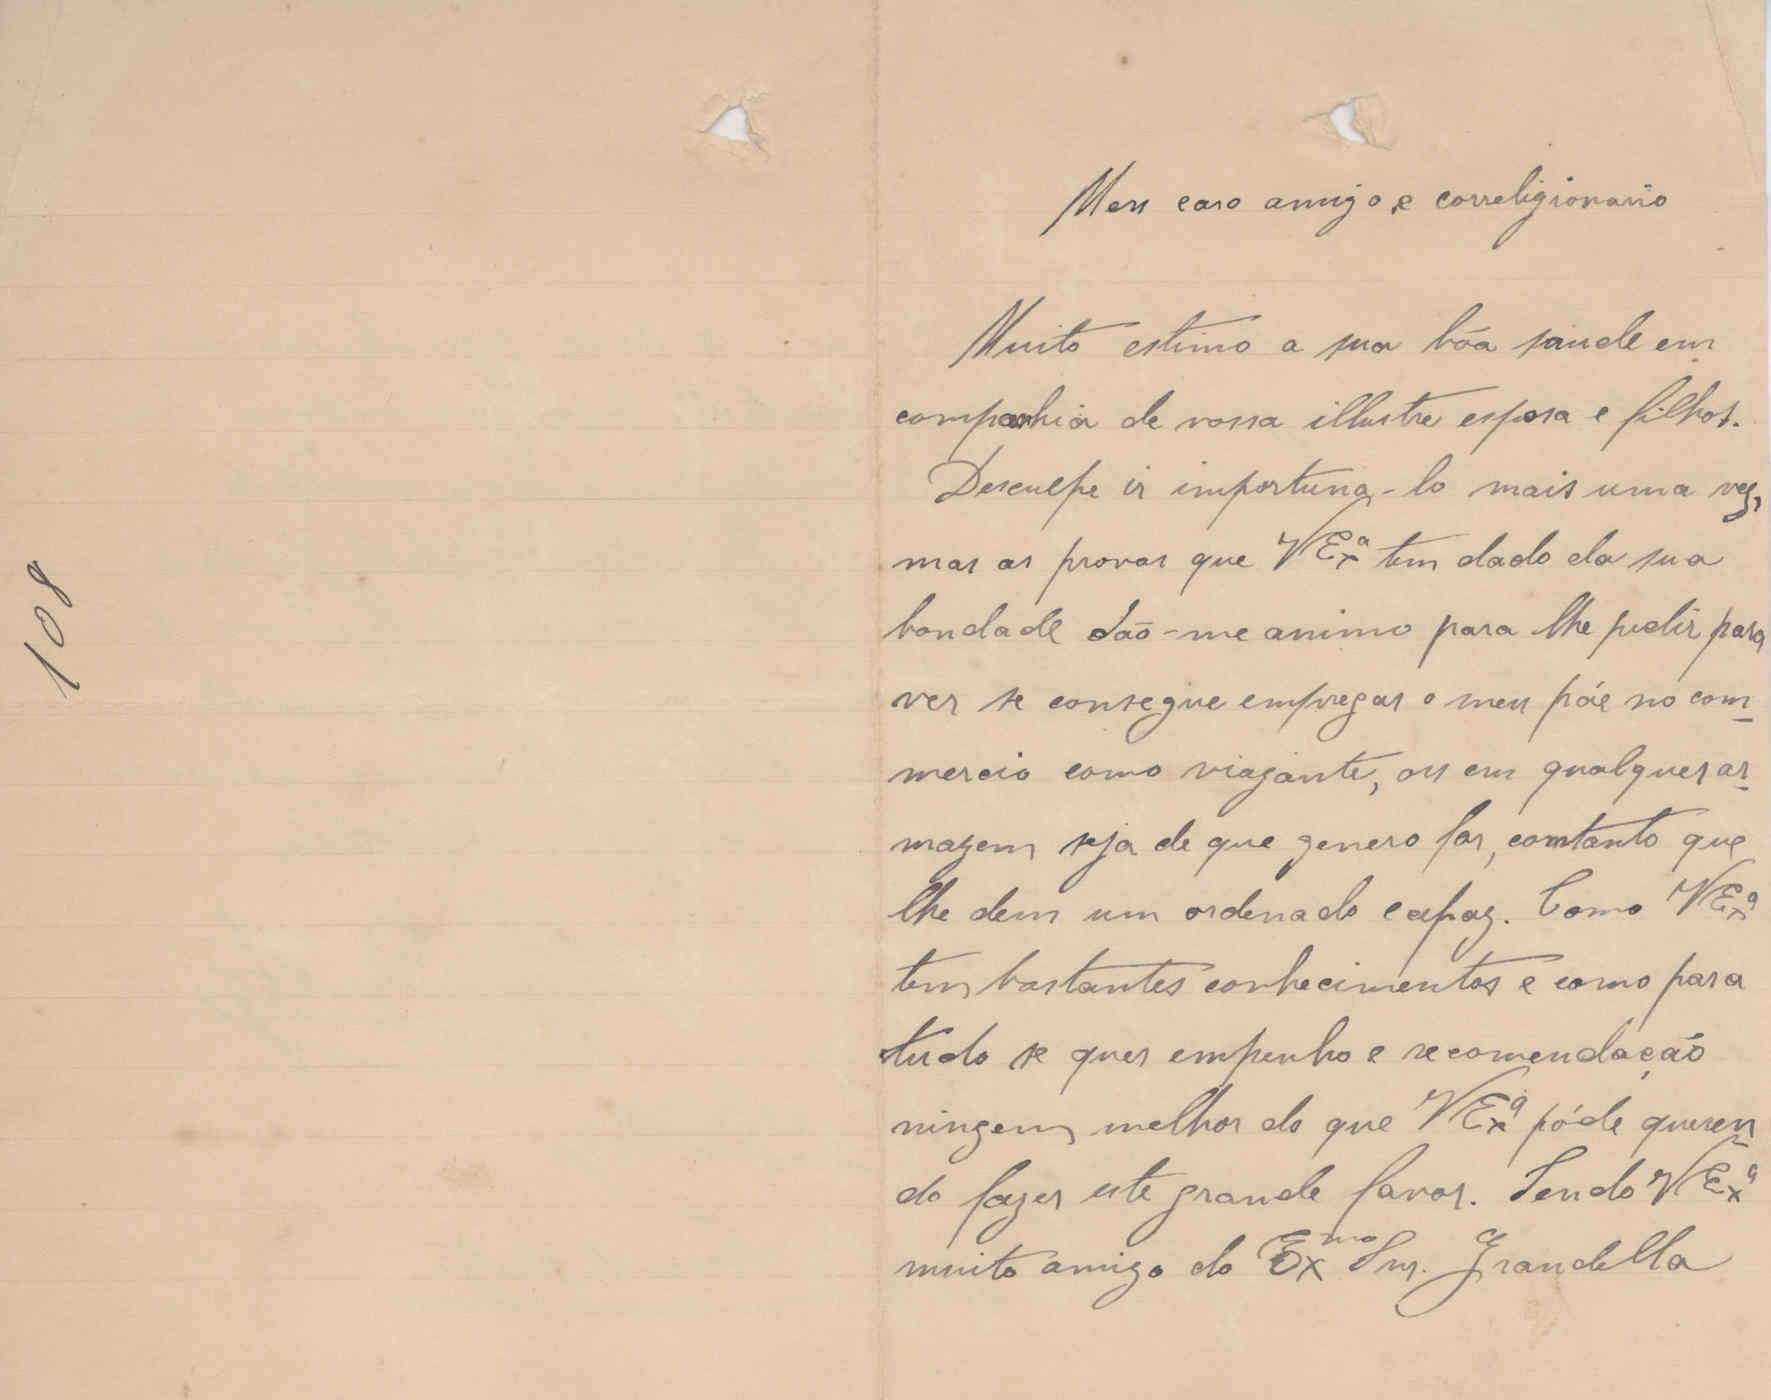 108
Meu caro amigo e correligionario
Muito estimo a sua bôa saude em
companhia de vossa illustre esposa e filhos.
Desculpe ir importuna-lo mais uma vez,
mas as provas que VExª tem dado da sua
bondade dão-me animo para lhe pedir para
ver se consegue empregar o meu páe no com-
mercio como viajante, ou em qualquer ar-
mazem seja de que genero for, comtanto que
lhe dem um ordenado capaz. Como VExª
tem bastantes conhecimentos e como para
tudo se quer empenho e recomendação
ningem melhor do que VExª póde queren-
do fazer este grande favor. Sendo VExª
muito amigo do Exmo Snr. Grandella